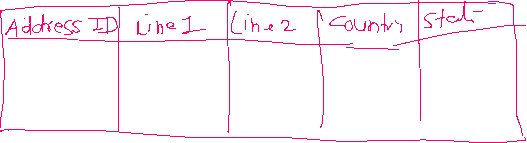 Address ID Line1 Line2 Country State